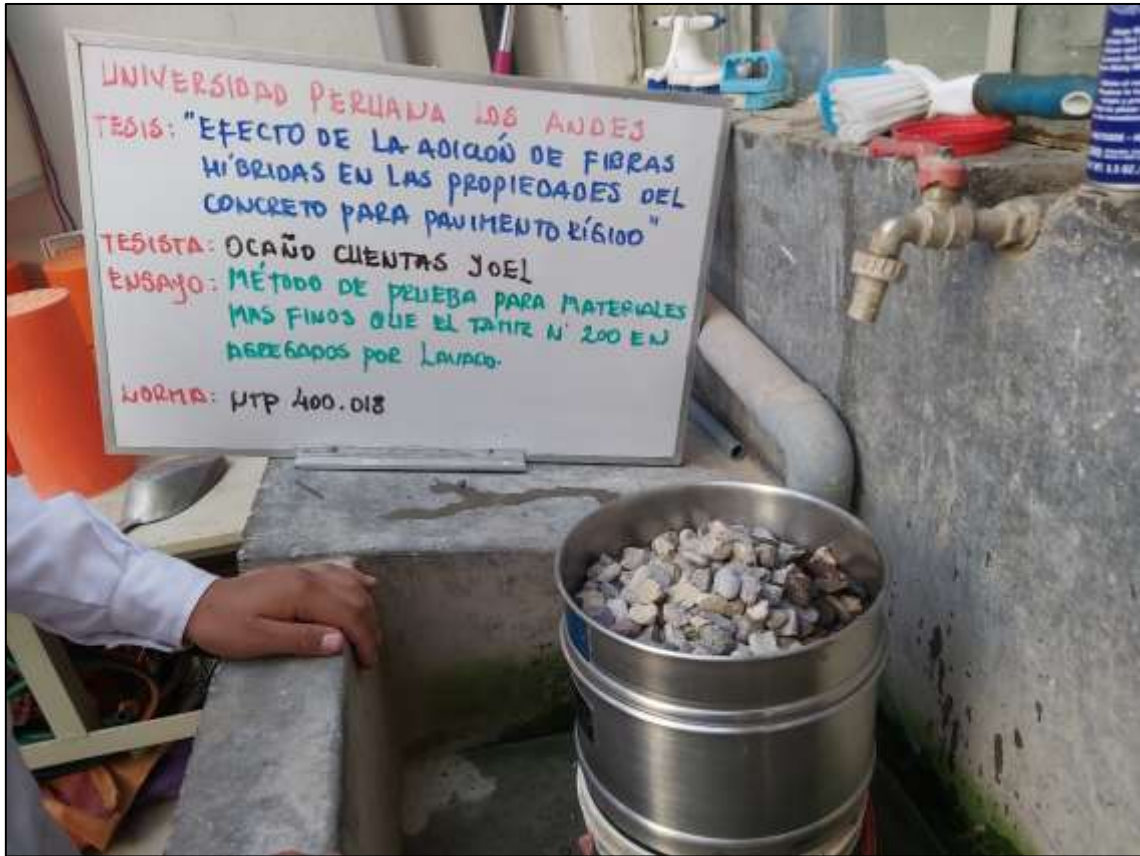 UNIVERSIDAD PERUANA LOS ANDES
TESIS: "EFECTO DE LA ADICIÓN DE FIBRAS
HÍBRIDAS EN LAS PROPIEDADES DEL
CONCRETO PARA PAVIMENTO RÍGIDO"
TESISTA: OCAÑO CUENTAS JOEL
ENSAYO: MÉTODO DE PRUEBA PARA MATERIALES
MAS FINOS QUE EL TAMIZ N° 200 EN
AGREGADOS POR LAVADO.
NORMA: NTP 400.018